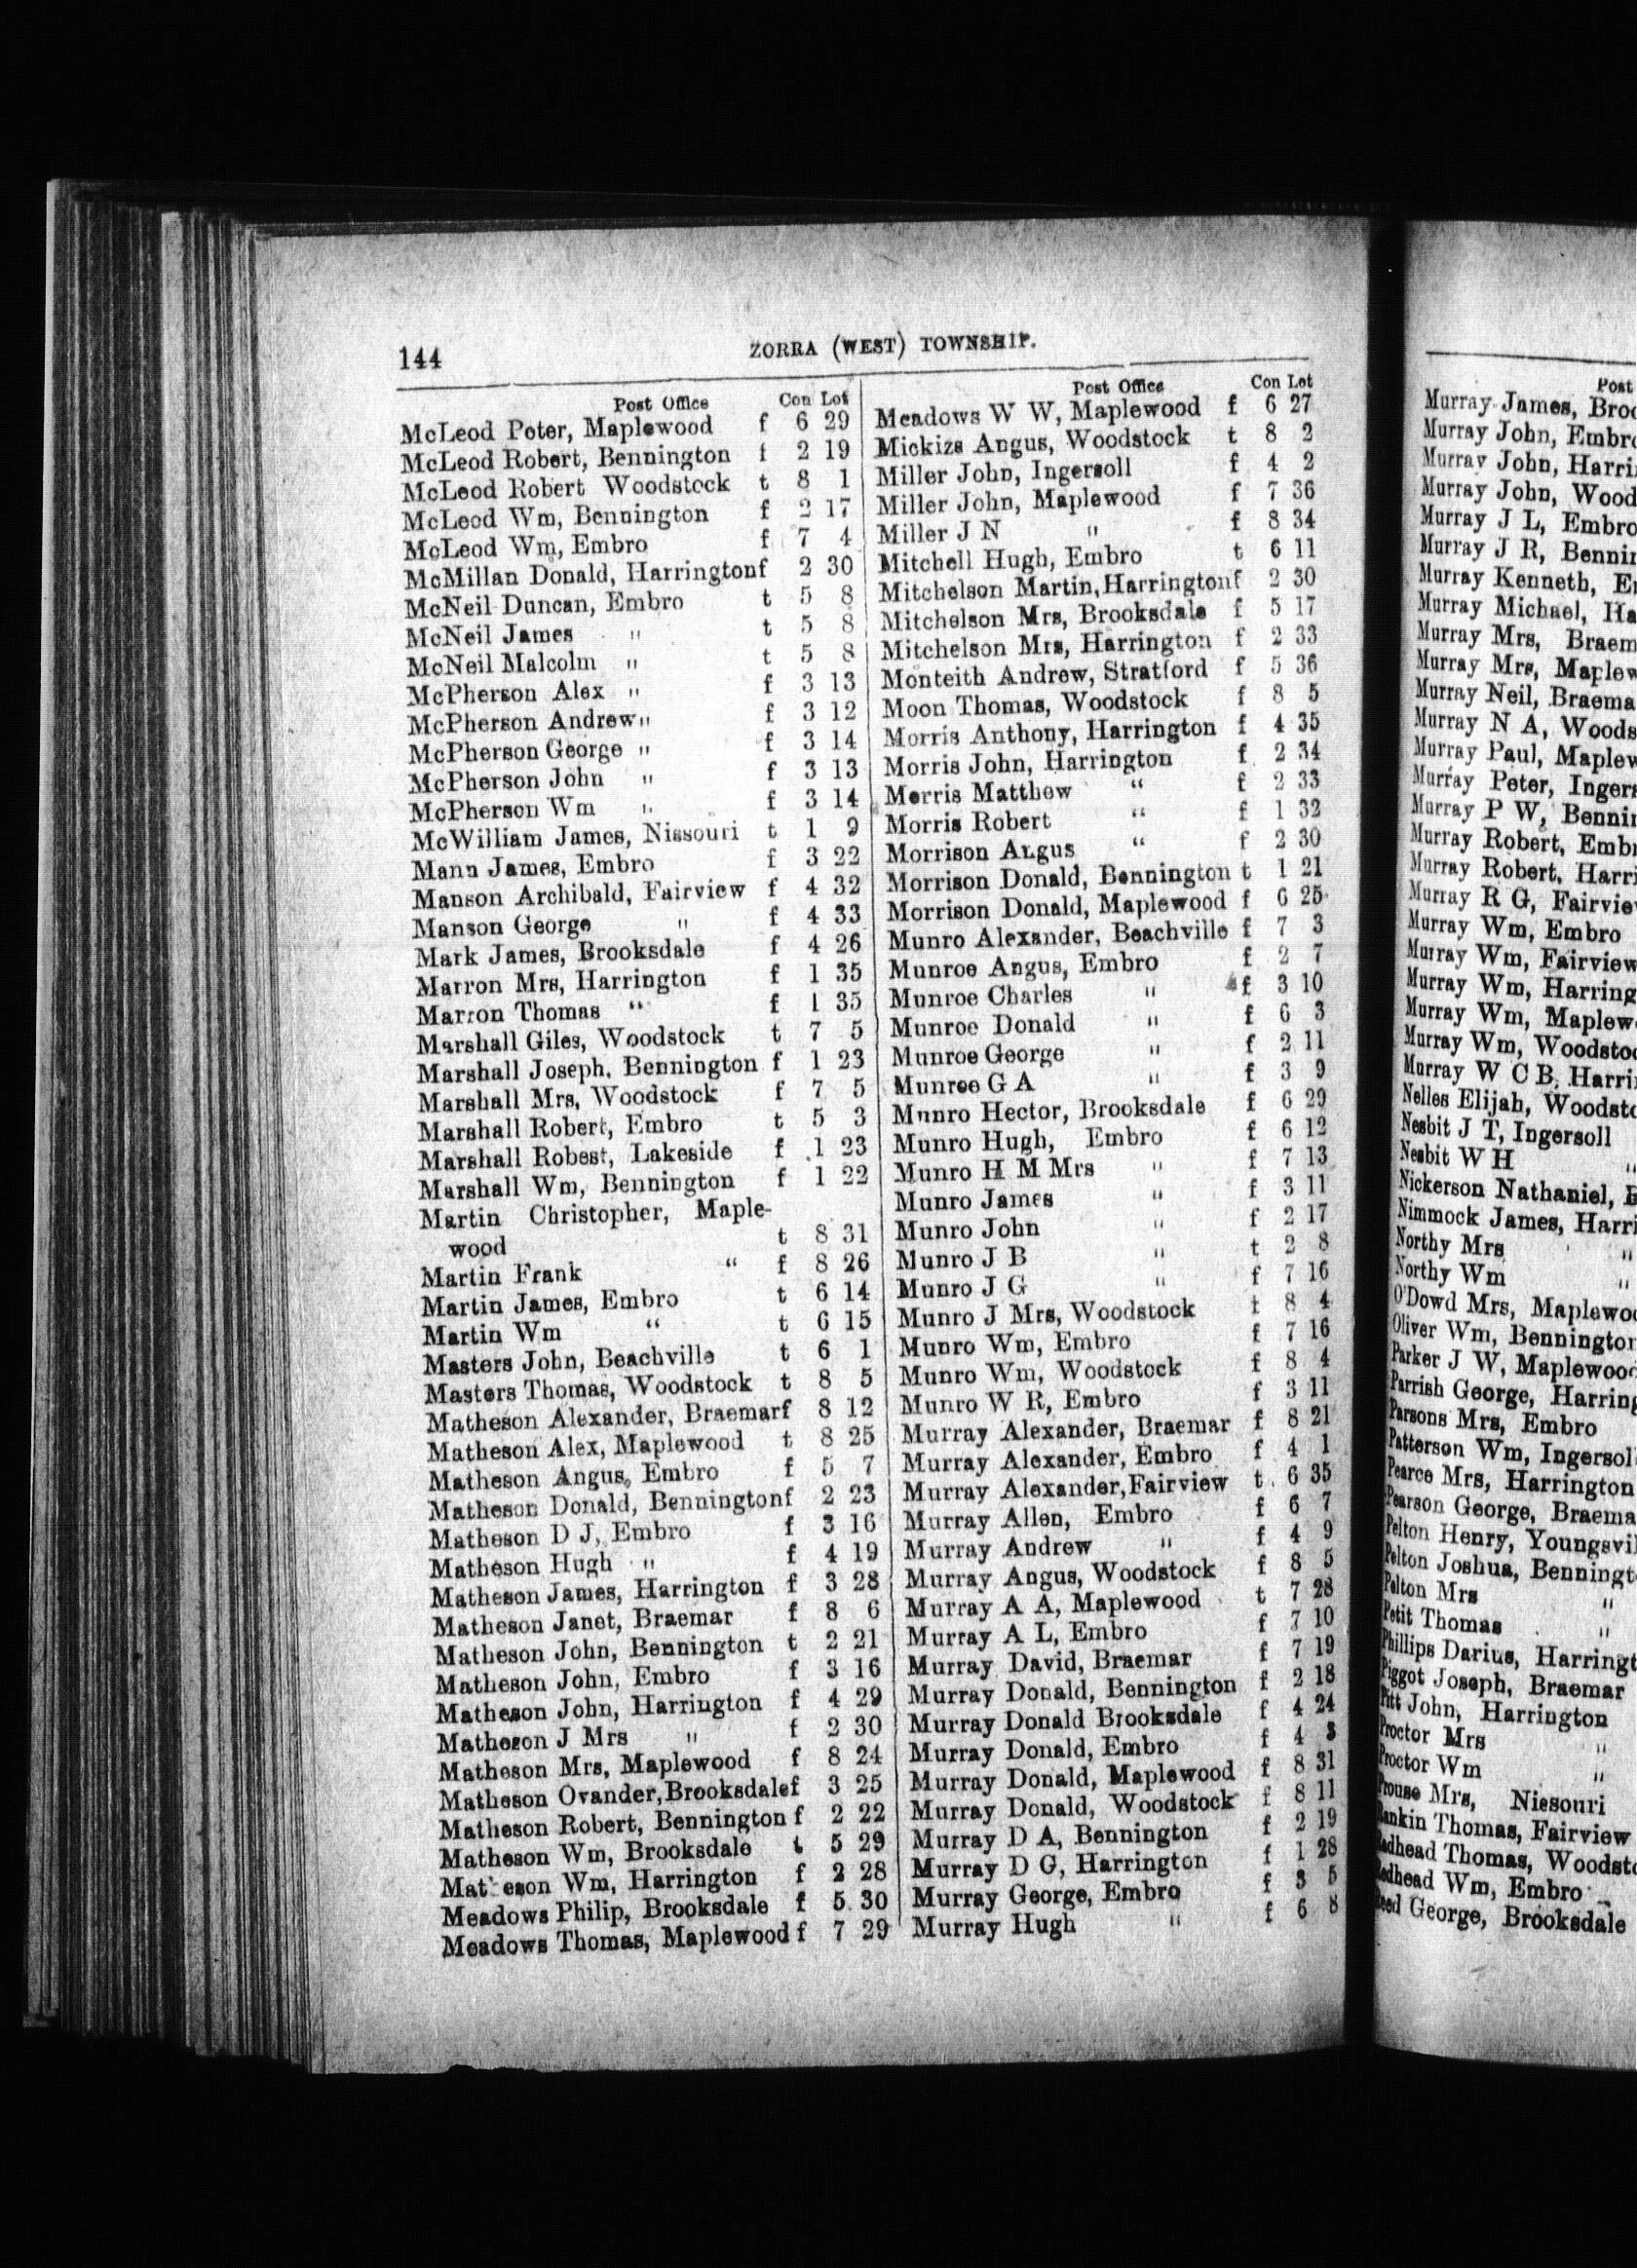 144
ZORRA (WEST) TOWNSHIP.
Post Office Con Lot
McLeod Peter, Maplewood f 6 29
McLeod Robert, Bennington t 2 19
McLeod Robert Woodstock t 8 1
McLeod Wm, Bennington f 2 17
McLeod Wm, Embro f 7 4
McMillan Donald, Harringtonf 2 30
McNeil Duncan, Embro t 5 8
McNeil James " t 5 8
McNeil Malcolm " t 5 8
McPherson Alex " f 3 13
McPherson Andrew " f 3 12
McPherson George " f 3 14
McPherson John " f 3 13
McPherson Wm " f 3 14
McWilliam James, Nissouri t 1 9
Mann James, Embro f 3 22
Manson Archibald, Fairview f 4 32
Manson George " f 4 33
Mark James, Brooksdale f 4 26
Marron Mrs, Harrington f 1 35
Marron Thomas " f 1 35
Marshall Giles, Woodstock t 7 5
Marshall Joseph, Bennington f 1 23
Marshall Mrs, Woodstock f 7 5
Marshall Robert, Embro t 5 3
Marshall Robest, Lakeside f 1 23
Marshall Wm, Bennington f 1 22
Martin Christopher, Maple-
wood t 8 31
Martin Frank " f 8 26
Martin James, Embro t 6 14
Martin Wm " t 6 15
Masters John, Beachville t 6 1
Masters Thomas, Woodstock t 8 5
Matheson Alexander, Braemarf 8 12
Matheson Alex, Maplewood t 8 25
Matheson Angus, Embro f 5 7
Matheson Donald, Benningtonf 2 23
Matheson D J, Embro f 3 16
Matheson Hugh " f 4 19
Matheson James, Harrington f 3 28
Matheson Janet, Braemar f 8 6
Matheson John, Bennington t 2 21
Matheson John, Embro f 3 16
Matheson John, Harrington f 4 29
Matheson J Mrs " f 2 30
Matheson Mrs, Maplewood f 8 24
Matheson Ovander, Brooksdalef 3 25
Matheson Robert, Bennington f 2 22
Matheson Wm, Brooksdale t 5 29
Mat eson Wm, Harrington f 2 28
Meadows Philip, Brooksdale f 5 30
Meadows Thomas, Maplewood f 7 29
Post Office Con Lot
Meadows W W, Maplewood f 6 27
Mickizs Angus, Woodstock t 8 2
Miller John, Ingersoll f 4 2
Miller John, Maplewood f 7 36
Miller J N " f 8 34
Mitchell Hugh, Embro t 6 11
Mitchelson Martin, Harringtonf 2 30
Mitchelson Mrs, Brooksdale f 5 17
Mitchelson Mrs, Harrington f 2 33
Monteith Andrew, Stratford f 5 36
Moon Thomas, Woodstock f 8 5
Morris Anthony, Harrington f 4 35
Morris John, Harrington f 2 34
Morris Matthew " f 2 33
Morris Robert " f 1 32
Morrison Angus " f 2 30
Morrison Donald, Bennington t 1 21
Morrison Donald, Maplewood f 6 25
Munro Alexander, Beachville f 7 3
Munroe Angus, Embro f 2 7
Munroe Charles " f 3 10
Munroe Donald " f 6 3
Munroe George " f 2 11
Munroe G A " f 3 9
Munro Hector, Brooksdale f 6 29
Munro Hugh, Embro f 6 12
Munro H M Mrs " f 7 13
Munro James " f 3 11
Munro John " f 2 17
Munro J B " t 2 8
Munro J G " f 7 16
Munro J Mrs, Woodstock t 8 4
Munro Wm, Embro f 7 16
Munro Wm, Woodstock f 8 4
Munro W R, Embro f 3 11
Murray Alexander, Braemar f 8 21
Murray Alexander, Embro f 4 1
Murray Alexander, Fairview t 6 35
Murray Allen, Embro f 6 7
Murray Andrew " f 4 9
Murray Angus, Woodstock f 8 5
Murray A A, Maplewood t 7 28
Murray A L, Embro f 7 10
Murray David, Braemar f 7 19
Murray Donald, Bennington f 2 18
Murray Donald Brooksdale f 4 24
Murray Donald, Embro f 4 3
Murray Donald, Maplewood f 8 31
Murray Donald, Woodstock f 8 11
Murray D A, Bennington f 2 19
Murray D G, Harrington f 1 28
Murray George, Embro f 3 5
Murray Hugh " f 6 8
Post
Murray James, Broo
Murray John, Embr
Murray John, Harri
Murray John, Wood
Murray J L, Embro
Murray J R, Bennin
Murray Kenneth, E
Murray Michael, Ha
Murray Mrs, Braem
Murray Mrs, Maplew
Murray Neil, Braema
Murray N A, Woods
Murray Paul, Maplew
Murray Peter, Ingers
Murray P W, Bennin
Murray Robert, Emb
Murray Robert, Harri
Murray R G, Fairvie
Murray Wm, Embro
Murray Wm, Fairview
Murray Wm, Harring
Murray Wm, Maplew
Murray Wm, Woodsto
Murray W C B, Harri
Nelles Elijah, Woodsto
Nesbit J T, Ingersoll
Nesbit W H "
Nickerson Nathaniel,
Nimmock James, Harri
Northy Mrs "
Northy Wm "
O'Dowd Mrs, Maplewo
Oliver Wm, Bennington
Parker J W, Maplewood
Parrish George, Harring
Parsons Mrs, Embro
Patterson Wm, Ingersol
Pearce Mrs, Harrington
Pearson George, Braema
Pelton Henry, Youngsvil
Pelton Joshua, Benningt
Pelton Mrs "
Petit Thomas "
Phillips Darius, Harringt
Piggot Joseph, Braemar
Pitt John, Harrington
Proctor Mrs "
Proctor Wm "
Prouse Mrs, Niesouri
Rankin Thomas, Fairview
Redhead Thomas, Woodsto
Redhead Wm, Embro
Reed George, Brooksdale